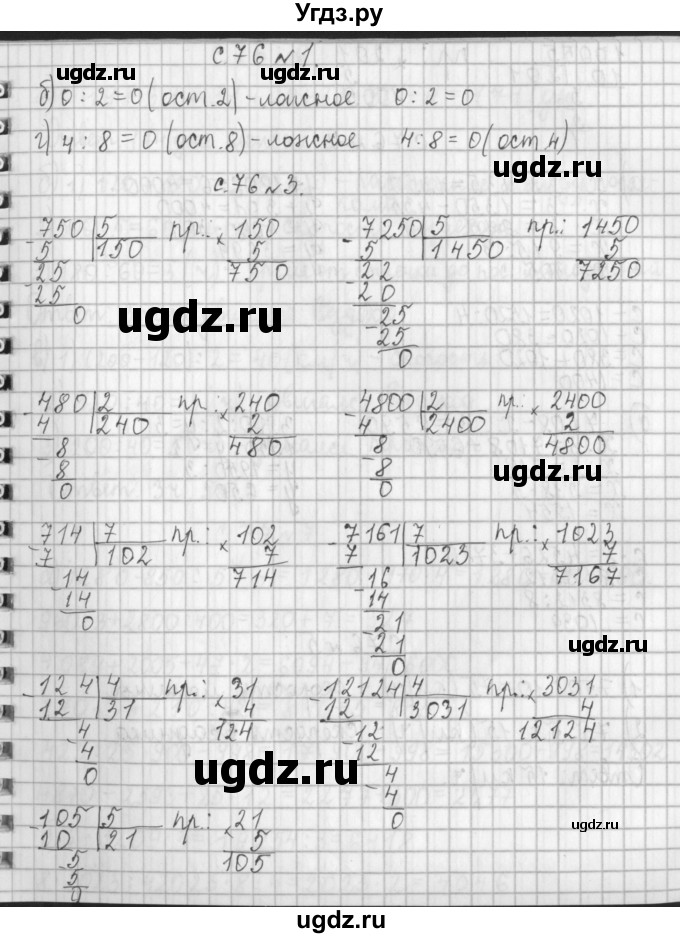 Угдз.ру
с.76 №1.
ugdz.ru ugdz.ru
б) 0 : 2 = 0 (ост. 2) - ложное 0 : 2 = 0
г) 4 : 8 = 0 (ост. 8) - ложное 4 : 8 = 0 (ост. 4)
ugdz.ru
с.76 №3.
750 | 5 пр.: 150 7250 | 5 пр.: 1450
- 5 150 × 5 - 5 1450 5
25 750 22 7250
- 25 - 20
0 25
- 25
0
ugdz.ru
480 | 2 пр.: 240 4800 | 2 пр.: 2400
- 4 240 × 2 - 4 2400 × 2
8 480 8 4800
- 8 - 8
0 0
ugdz.ru ugdz.ru
714 | 7 пр.: 102 7161 | 7 пр.: 1023
- 7 102 × 7 - 7 1023 × 7
14 714 16 7167
- 14 - 14
0 21
- 21
0
ugdz.ru ugdz.ru
124 | 4 пр.: 31 12124 | 4 пр.: 3031
- 12 31 × 4 - 12 3031 × 4
4 124 12 12124
- 4 - 12
0 4
- 4
0
ugdz.ru
105 | 5 пр.: 21
- 10 21 × 5
5 105
- 5
0
ugdz.ru
ugdz.ru